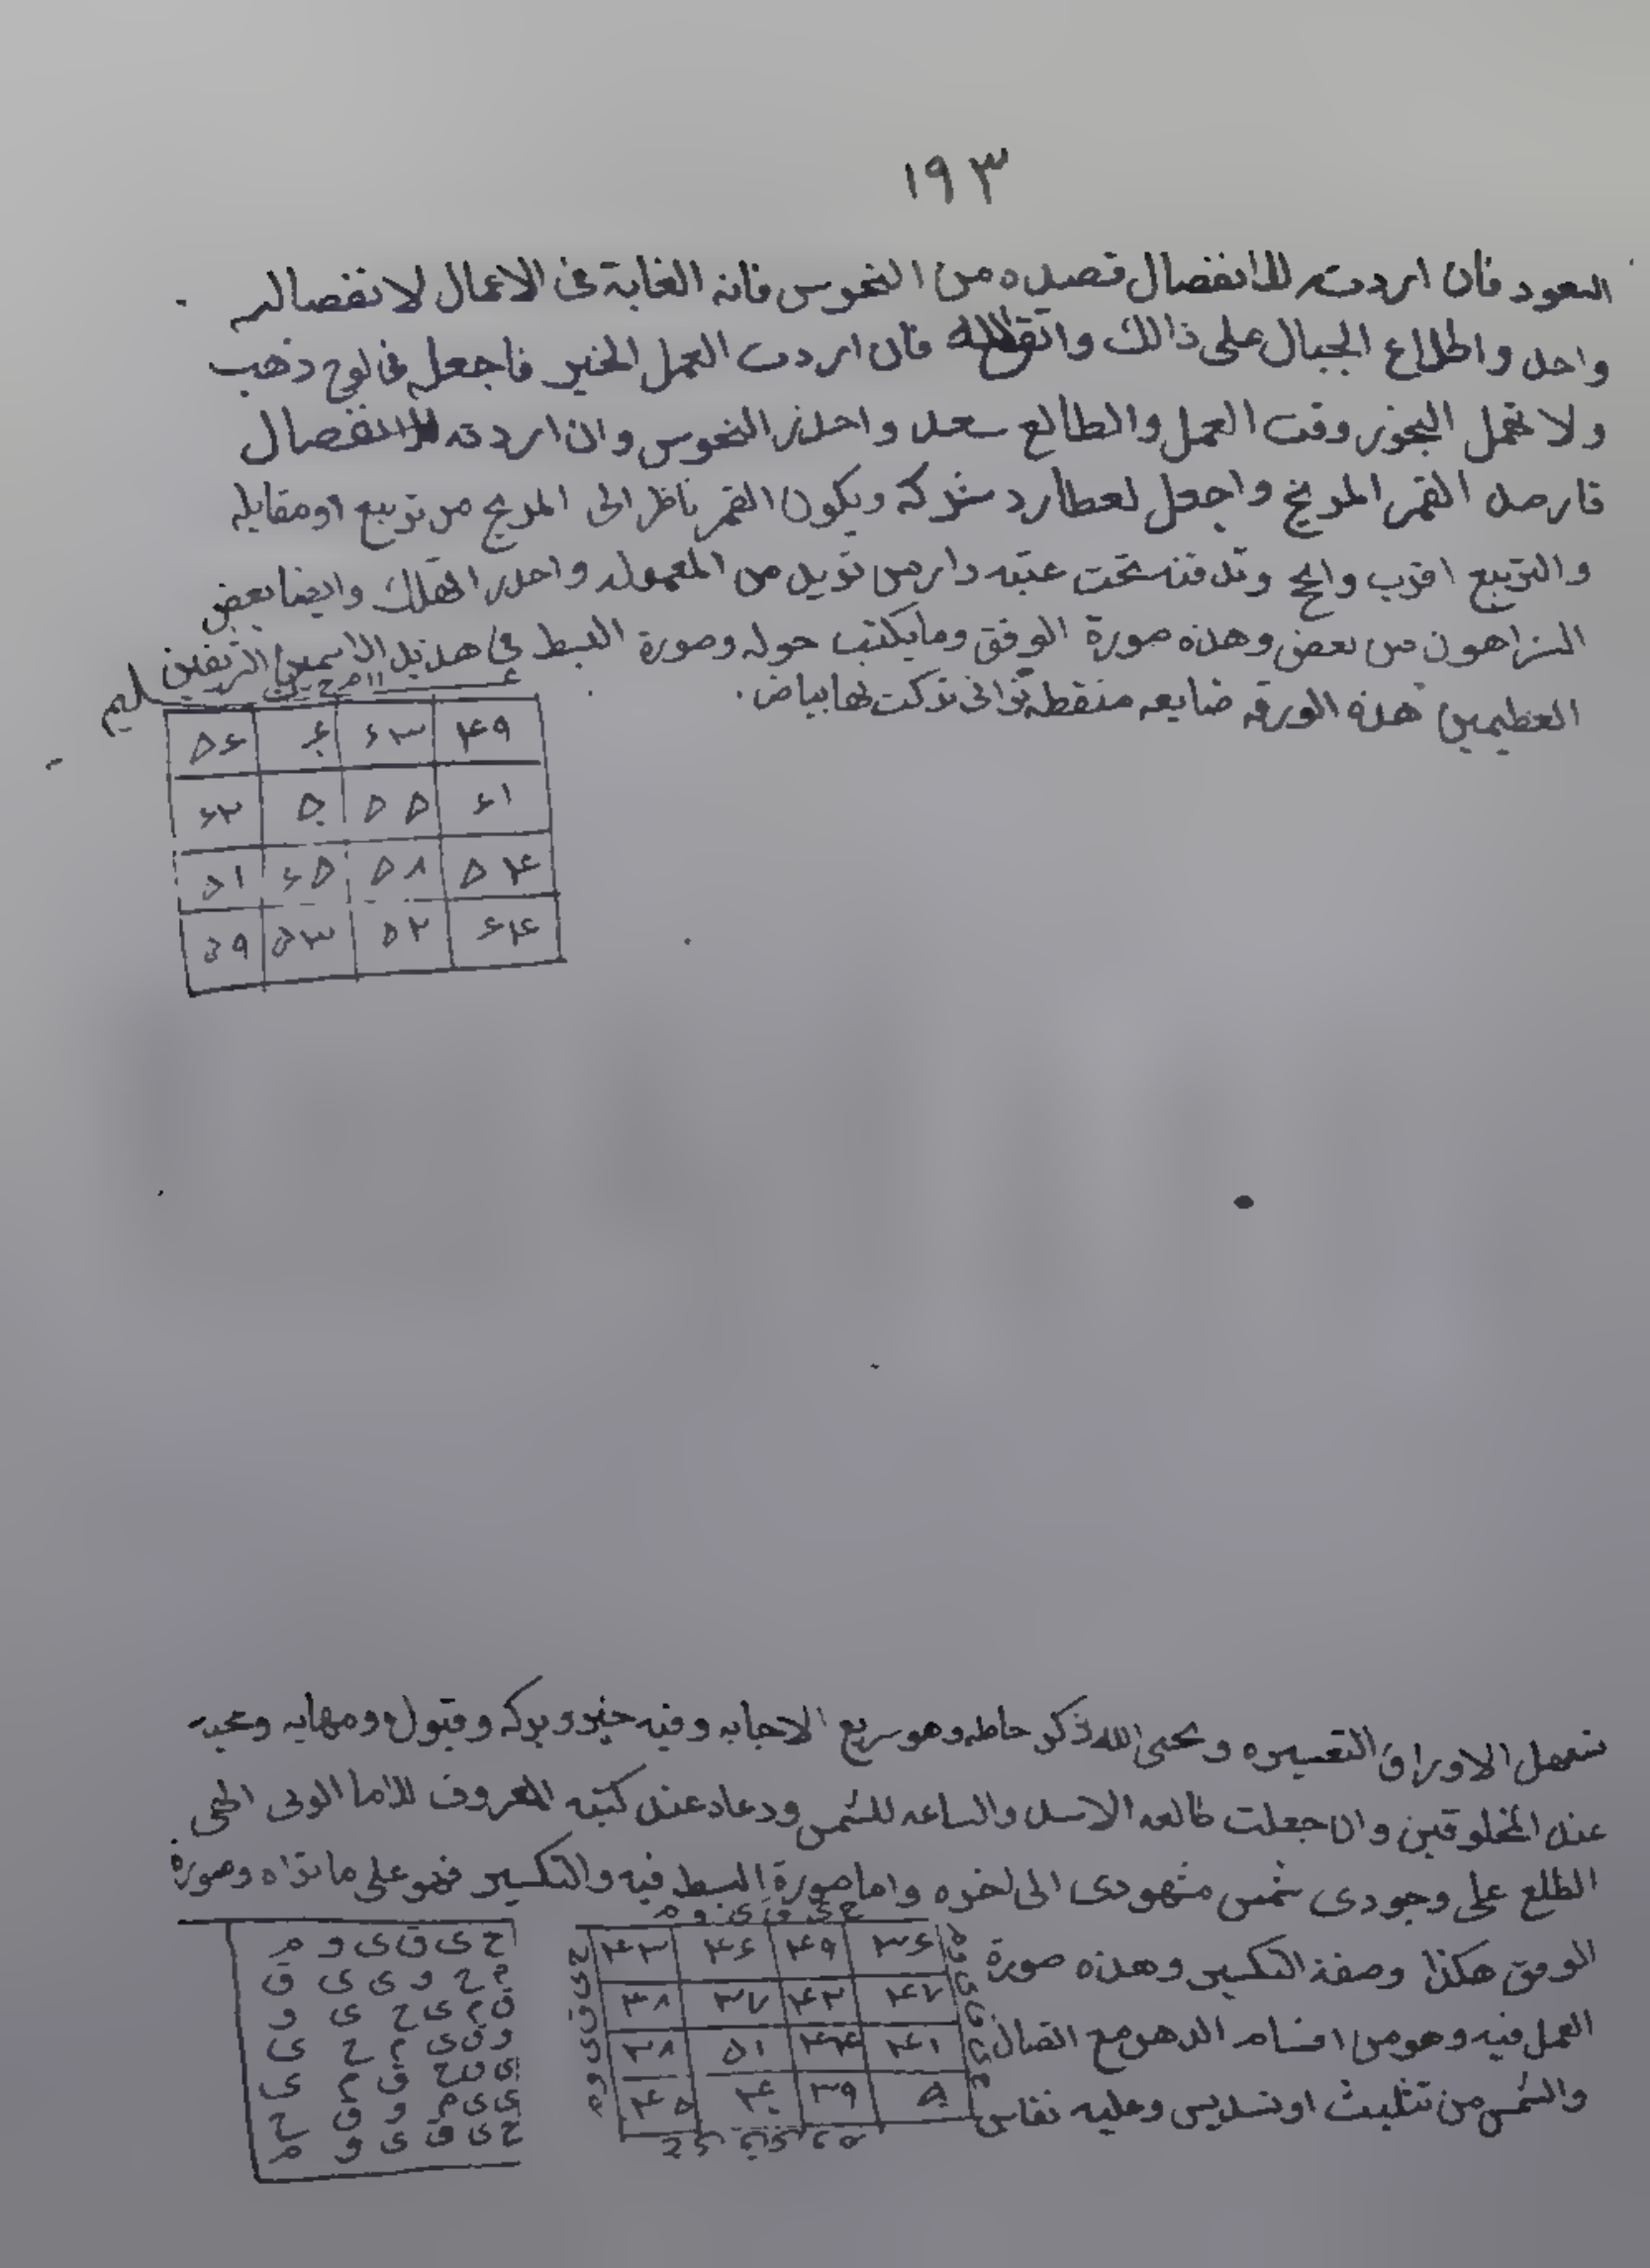 ١٩٣
السعود فان اردته للانفصال قصده من النحوس فانه الغاية فى الاعمال لانفصاله
واحد واطلاع الجبال على ذالك واتق الله فان اردت العمل الخير فاجعله فى لوح ذهب
ولا تهمل البخور وقت العمل والطالع سعد واحذر النحوس وان اردته للانفصال
فارصد القمر المريخ واجعل لعطارد شركه ويكون القمر ناظر الى المريخ من تربيع او مقابله
والتربيع اقرب وانجح وتدفنه تحت عتبه دار من تريد من المعموله واحذر الهلاك وايضا بعض
اهون من بعض وهذه صورة الوفق وما يكتب حوله وصورة البسط فى هذين الاسمين الشريفين
العظيمين هذه الورقه ضايعه منقطه توانى تركت لها بياض
۴۹ ۶۳ ۶۰ ۵۶
۶۱ ۵۵ ۵۰ ۶۲
۵۴ ۵۸ ۶۵ ۵۱
۶۴ ۵۲ ۵۳ ۵۹
الاوراق وهو سريع الاجابه وفيه خير وبركه وقبول ومهابه ومحبه
عند المخلوقين وان جعلت طالعه الاسد والساعه للشمس ودعاد عند كتبه المعروف
الطلع على وجودى شمس شهودى الى اخره واما صورة البسط فيه والتكسير فهو على ما تراه وصورة
الوفق هكذا وصفة التكسير وهذه صورة
العمل فيه وهو من اقسام الدهر مع اتصال
والشمس من تثليث او تسديس وعليه تقاس
ح ى ق ى و م
۳۶ ۴۹ ۴۶ ۴۳
۴۷ ۴۲ ۳۷ ۴۸
۴۱ ۴۴ ۵۱ ۳۸
۵۰ ۳۹ ۴۰ ۴۵
ح ى ق ى و م
م ح و ى ى ق
ق م ى ح ى و
و ق ى م ح ى
ى و ح ق م ى
ى ى م و ق ح
ح ى ق ى و م